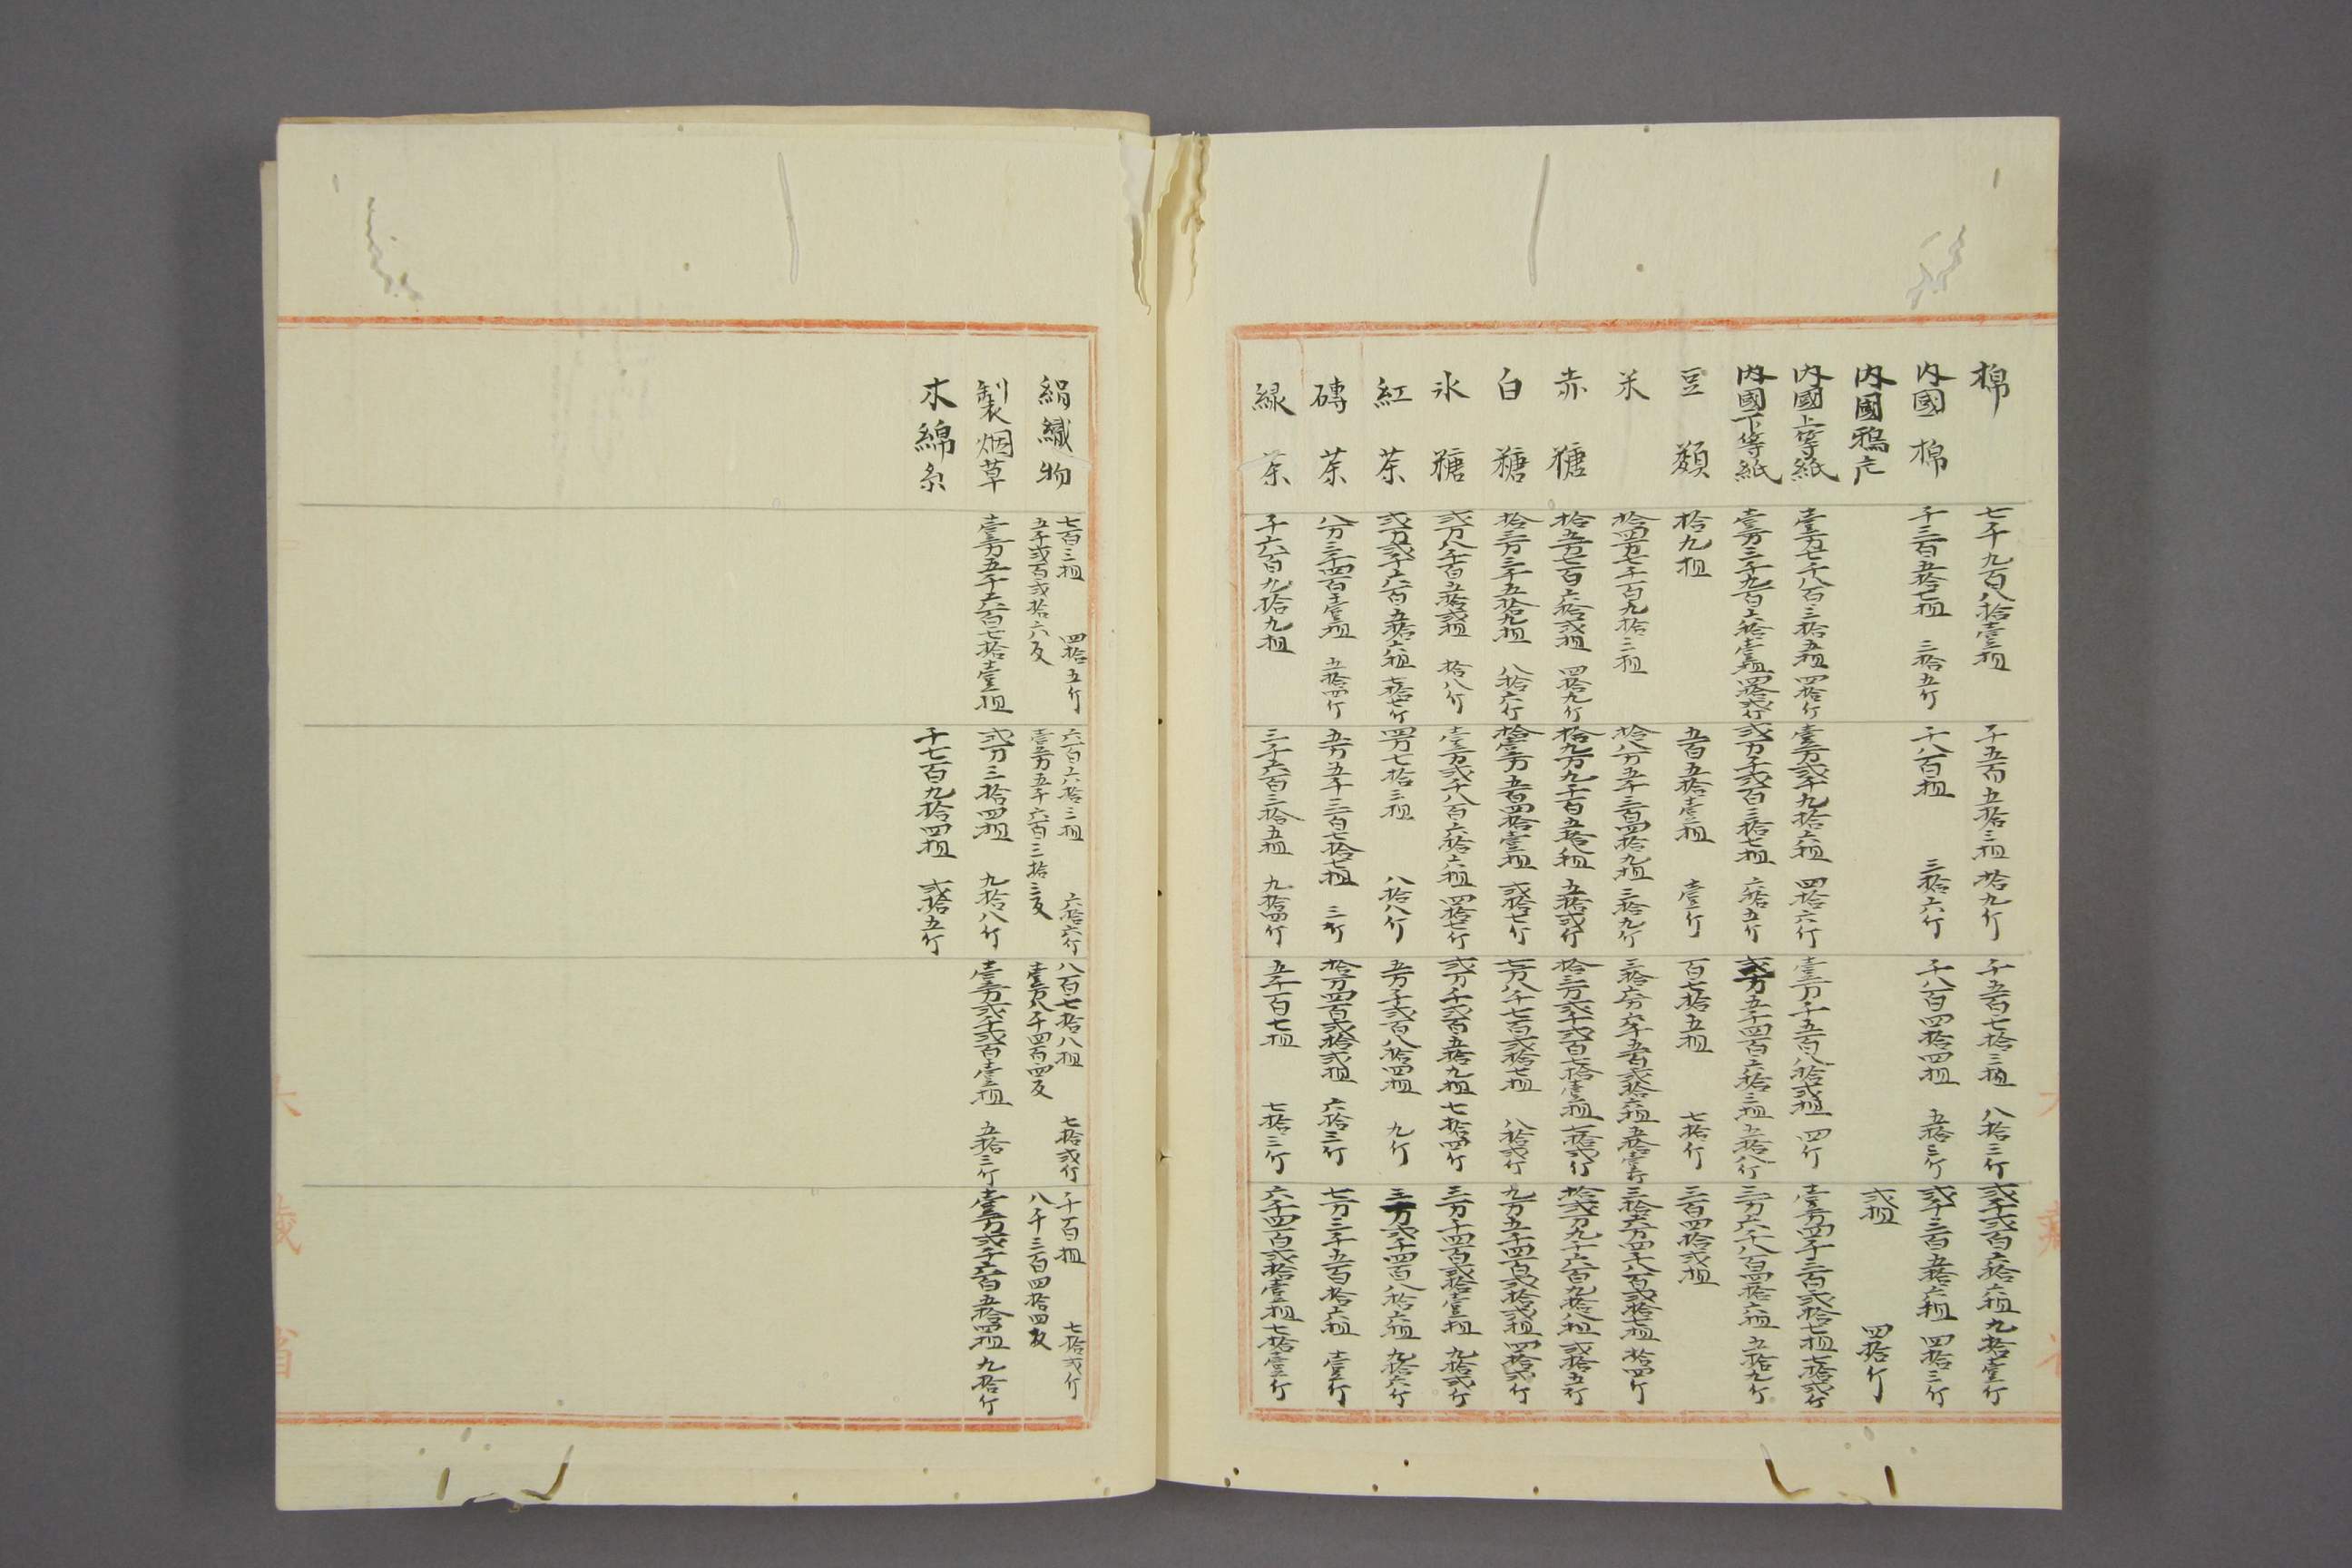 棉 七千九百八拾壹担 千五百五拾三担 拾九斤 千五百七拾三担 八拾三斤 弐千弐百六拾六担 九拾壹斤
内國棉 千三百五拾七担 三拾五斤 千八百担 三拾六斤 千八百四拾四担 五拾三斤 弐千三百五拾六担 四拾三斤
内國鴉片 弐担 四拾斤
内國上等紙 壹万七千八百三拾五担 四拾斤 壹万弐千九拾六担 四拾六斤 壹万千五百八拾弐担 四斤 壹万四千三百弐拾七担 七拾弐斤
内國下等紙 壹万三千九百六拾壹担 四拾弐斤 弐万千弐百三拾七担 六拾五斤 弐万五千四百六拾三担 五拾八斤 三万六千八百四拾六担 五拾九斤
豆類 拾九担 五百五拾壹担 壹斤 百七拾五担 七拾斤 三百四拾弐担
米 拾四万七千百九拾三担 拾八万五千三百四拾九担 三拾九斤 三拾六万六千五百弐拾六担 五拾壹斤 三拾六万四千八百弐拾七担 拾四斤
赤糖 拾五万七百六拾弐担 四拾九斤 拾九万九千百五拾八担 五拾弐斤 拾三万弐千弐百七拾壹担 七拾弐斤 拾弐万九千六百九拾八担 弐拾五斤
白糖 拾三万三千五拾九担 八拾六斤 拾壹万五百四拾壹担 弐拾七斤 七万八千七百弐拾七担 八拾弐斤 九万五千四百弐拾弐担 四拾弐斤
氷糖 弐万八千百五拾弐担 拾八斤 壹万弐千八百六拾六担 四拾七斤 弐万千弐百五拾九担 七拾四斤 三万千四百弐拾壹担 九拾弐斤
紅茶 弐万弐千六百五拾六担 七拾七斤 四万七拾三担 八拾八斤 五万千弐百八拾四担 九斤 三万弐千四百八拾六担 九拾六斤
磚茶 八万三千四百壹担 五拾四斤 五万五千三百七拾七担 三斤 拾万四百弐拾弐担 六拾三斤 七万三千五百拾六担 壹斤
緑茶 千六百九拾九担 三千六百三拾五担 九拾四斤 五千百七担 七拾三斤 六千四百弐拾壹担 七拾壹斤
絹織物 七百三担 四拾五斤 五千弐百弐拾六反 六百六拾三担 六拾六斤 壹万五千六百三拾三反 八百七拾八担 七拾弐斤 壹万八千四百四反 千百担 七拾弐斤 八千三百四拾四反
製烟草 壹万五千六百七拾壹担 弐万三拾四担 九拾八斤 壹万弐千弐百壹担 五拾三斤 壹万弐千六百五拾四担 九拾斤
木綿糸 千七百九拾四担 弐拾五斤
大藏省